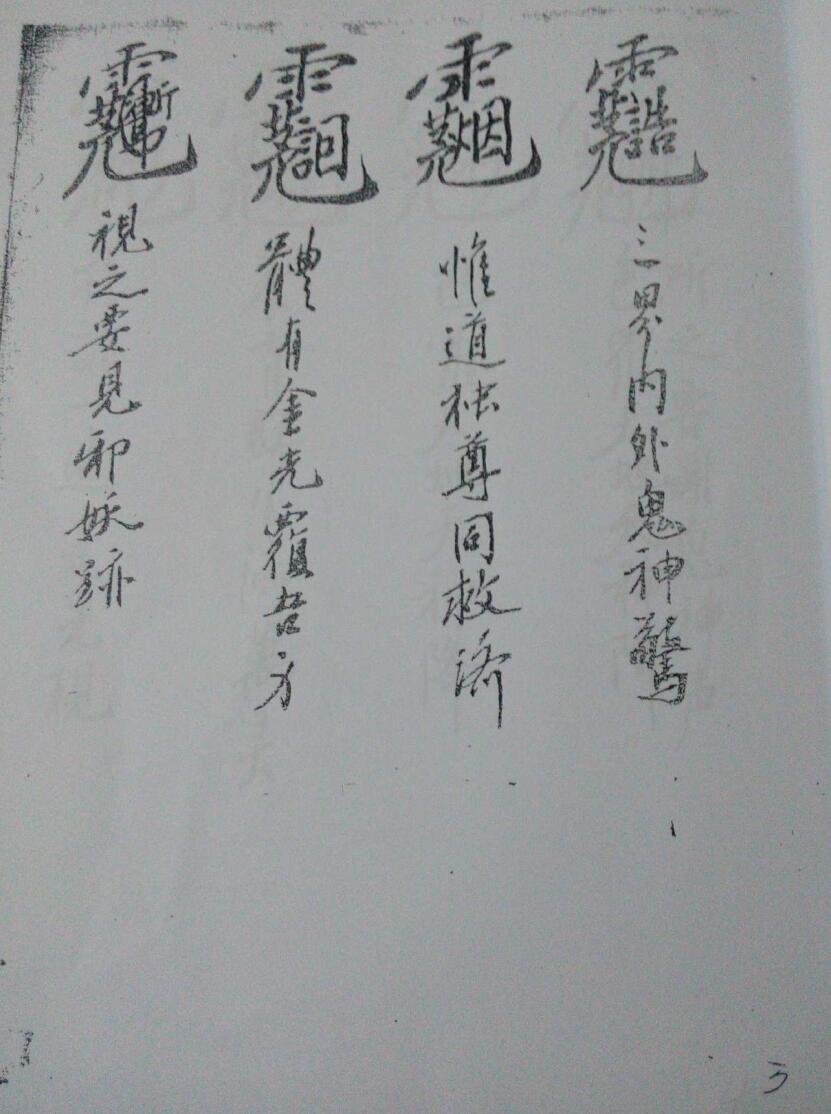 三界内外鬼神驚
惟道独尊同救济
體有金光覆吾身
視之要見邪妖跡
3